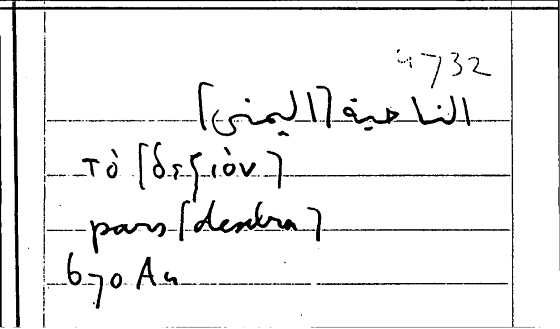 4732
الناحية [اليمنى]
τὸ [δεξιὸν]
pars [dextra]
670 A4